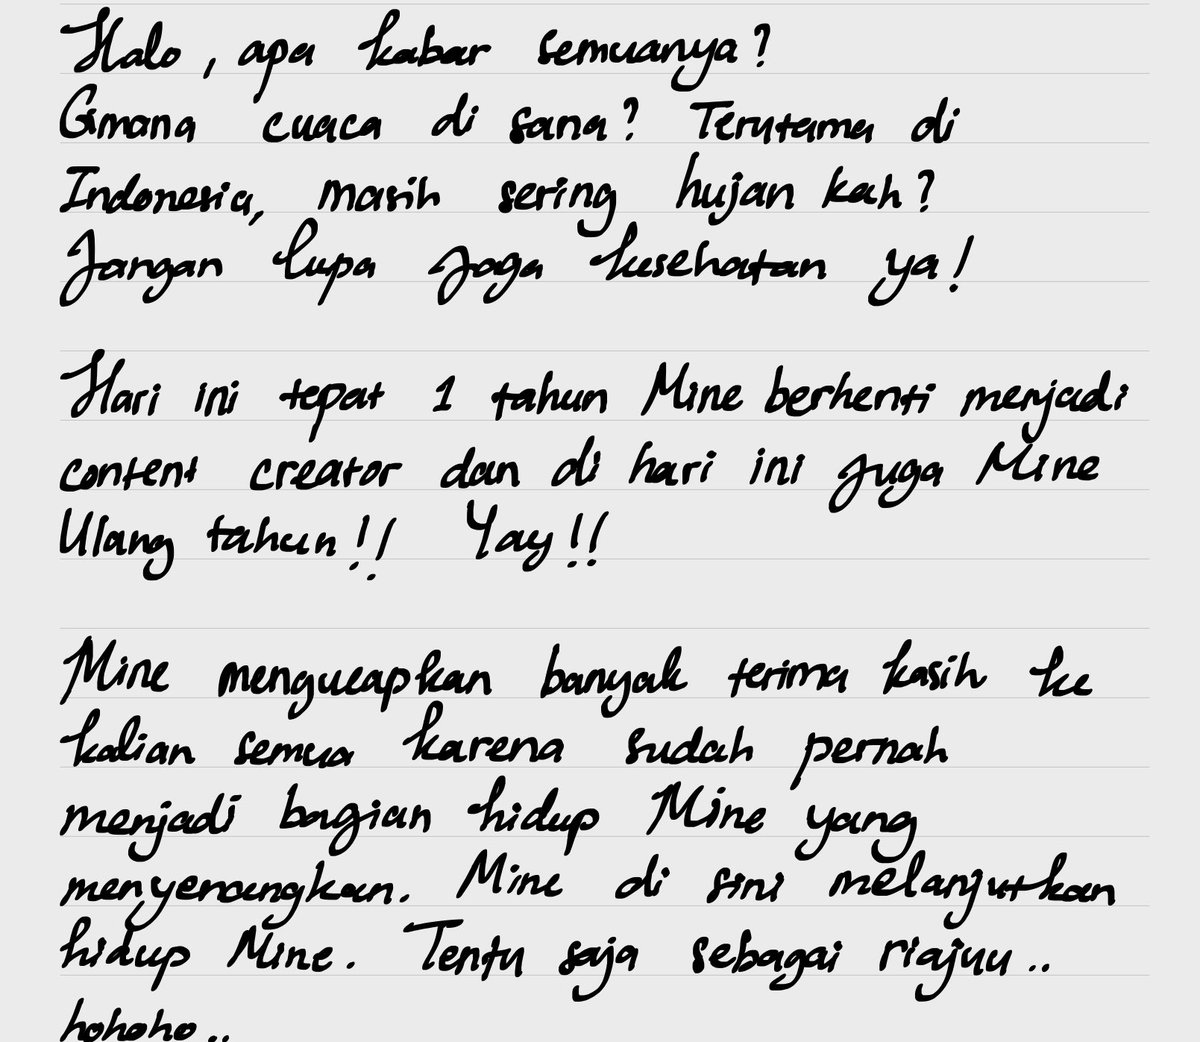 Halo, apa kabar semuanya?
Gimana cuaca di sana? Terutama di
Indonesia, masih sering hujan kah?
Jangan lupa jaga kesehatan ya!
Hari ini tepat 1 tahun Mine berhenti menjadi
content creator dan di hari ini juga Mine
Ulang tahun!! Yay!!
Mine mengucapkan banyak terima kasih ke
kalian semua karena sudah pernah
menjadi bagian hidup Mine yang
menyenangkan. Mine di sini melanjutkan
hidup Mine. Tentu saja sebagai riajuu..
hohoho..